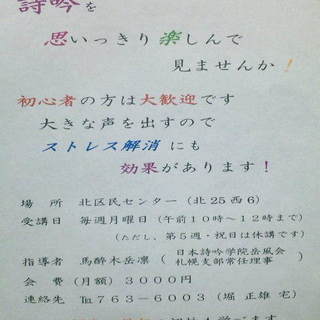 詩吟を
思いっきり楽しんで
見ませんか!
初心者の方は大歓迎です
大きな声を出すので
ストレス解消にも
効果があります!
場 所 北区民センター (北25西6)
受講日 毎週月曜日 (午前10時〜12時まで)
(ただし、第5週・祝日は休講です)
指導者 馬酔木岳凛 (日本詩吟学院岳風会
札幌支部常任理事)
会 費 (月額) 3000円
連絡先 ℡763-6003 (堀 正雄 宅)